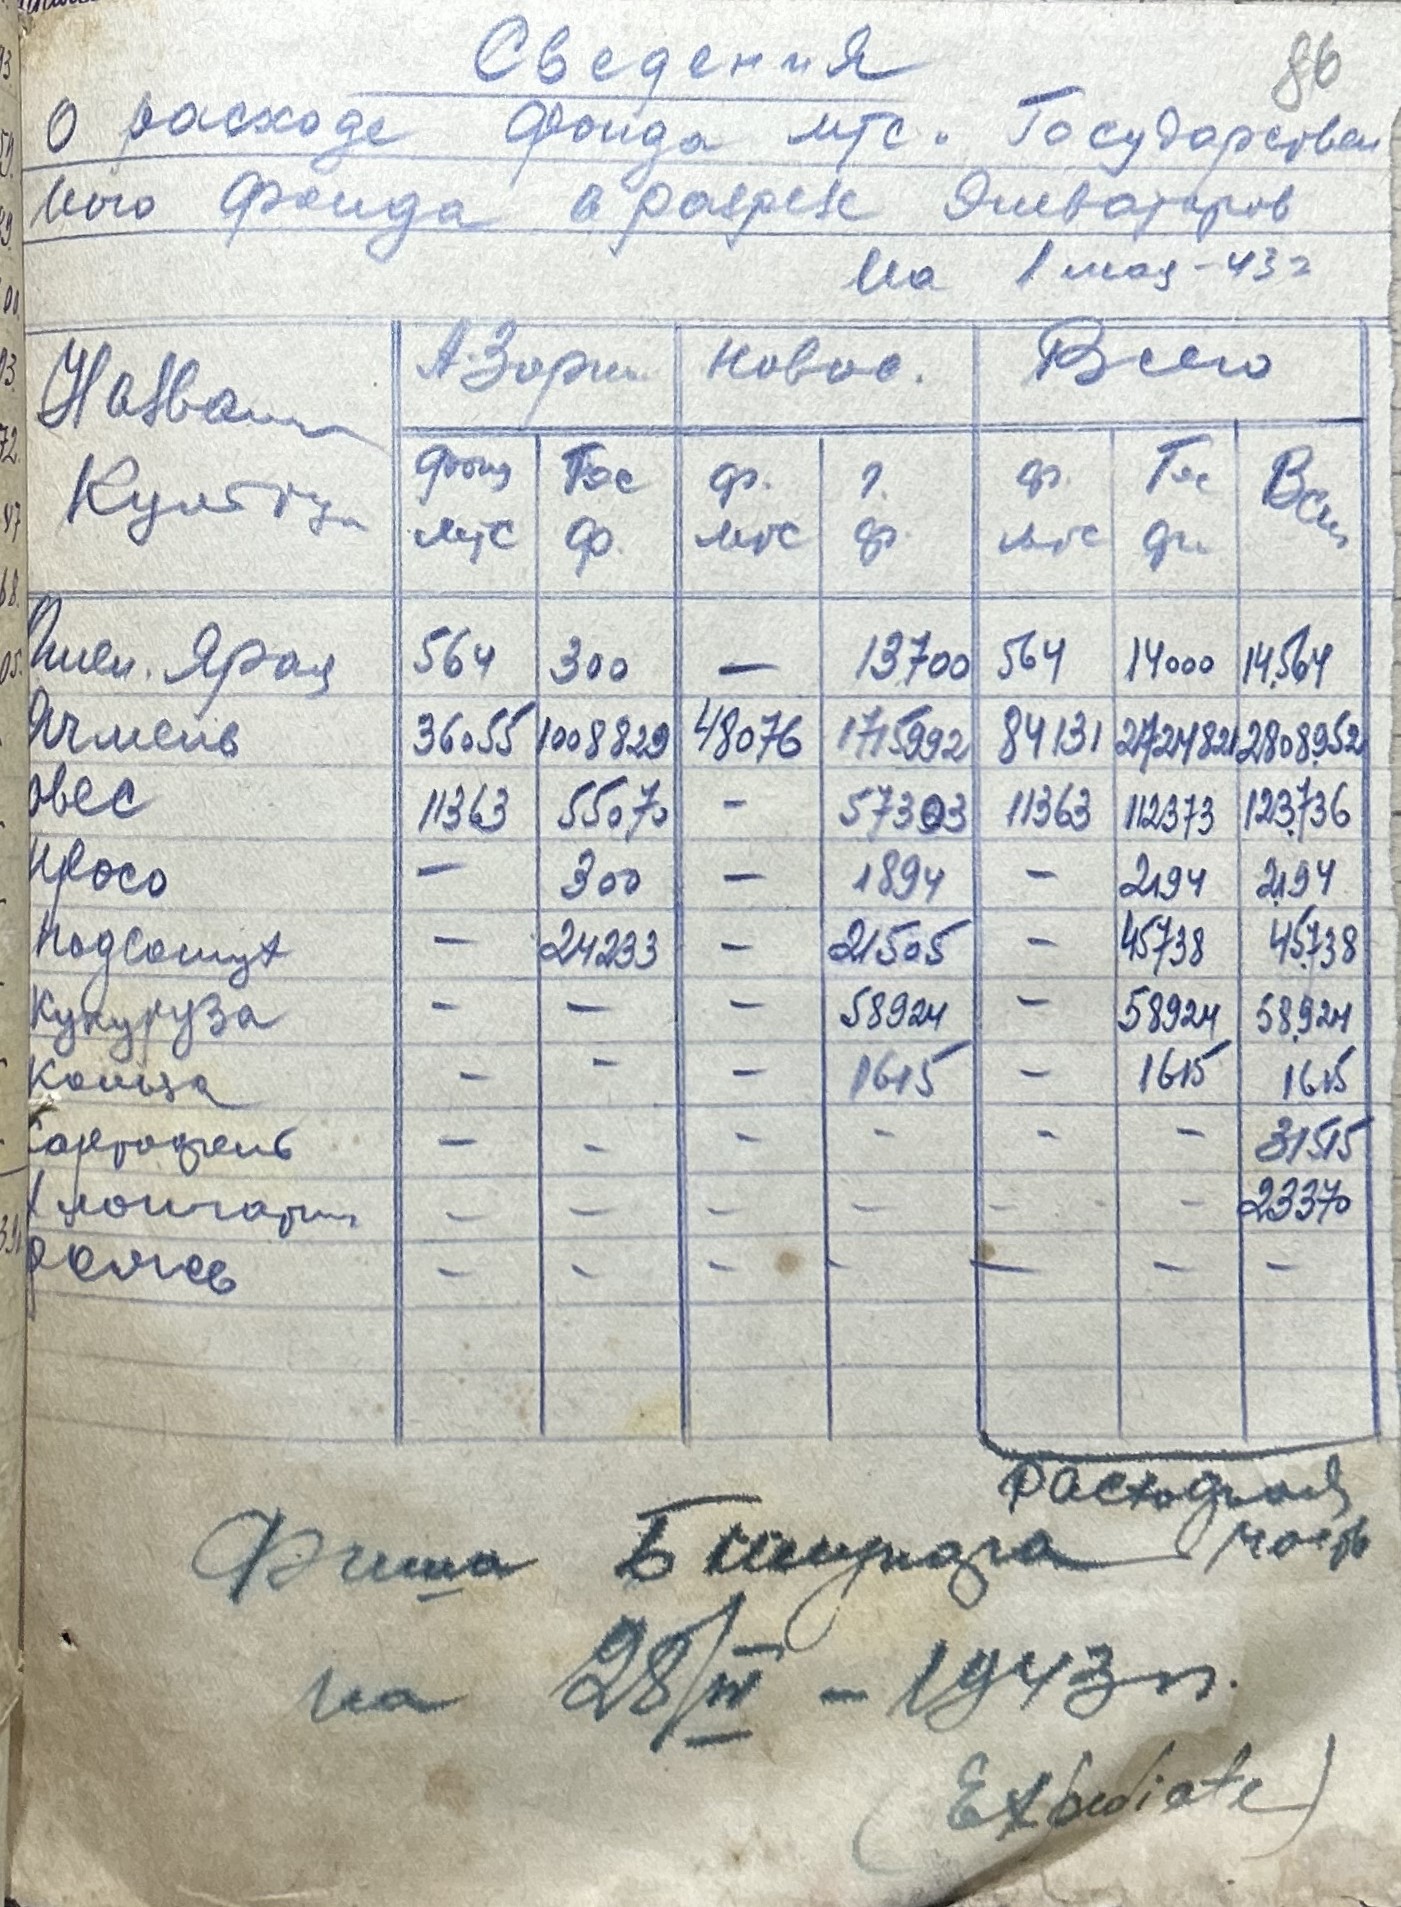 86
Сведения
О расходе Фонда мтс. Государствен
ного Фонда в разрезе Элеваторов
На 1 мая-43г
Назван Культур А.Зори Новос. Всего
Фонд мтс Гос ф. ф. мтс г. ф. ф. мтс Гос фн Всего
Пшен. Ярая 564 300 — 13700 564 14000 14.564
Ячмень 36055 1008829 48076 1715992 84131 2724821 2808952
овес 11363 55070 - 57303 11363 112373 123.736
Просо — 300 — 1894 - 2194 2.194
Подсолнух - 24233 - 21505 - 45738 45.738
Кукуруза - — - 58924 - 58924 58.924
Кольза - - - 1615 - 1615 1615
Картофель - - - - - - 31515
- - - - - - 23370
- - - - — - -
расходная
часть
на 28/III - 1943 г.